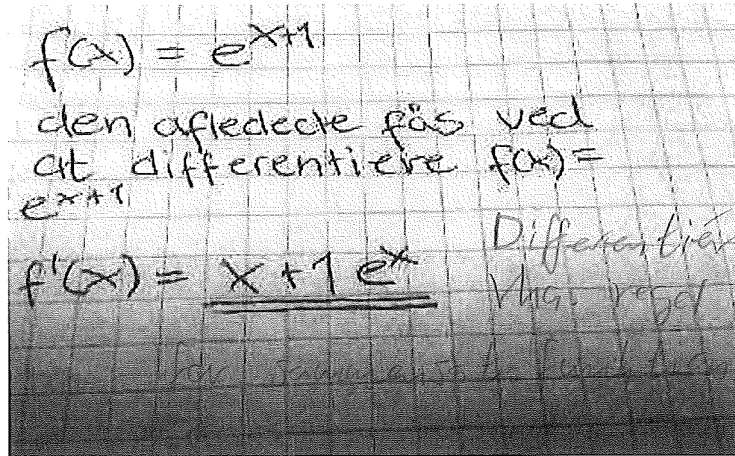 f(x) = e^{x+1}
den afledede fås ved
at differentiere f(x) =
e^{x+1}
f'(x) = x + 1 e^x
Differentiér
vha. regel
for sammensat funktion